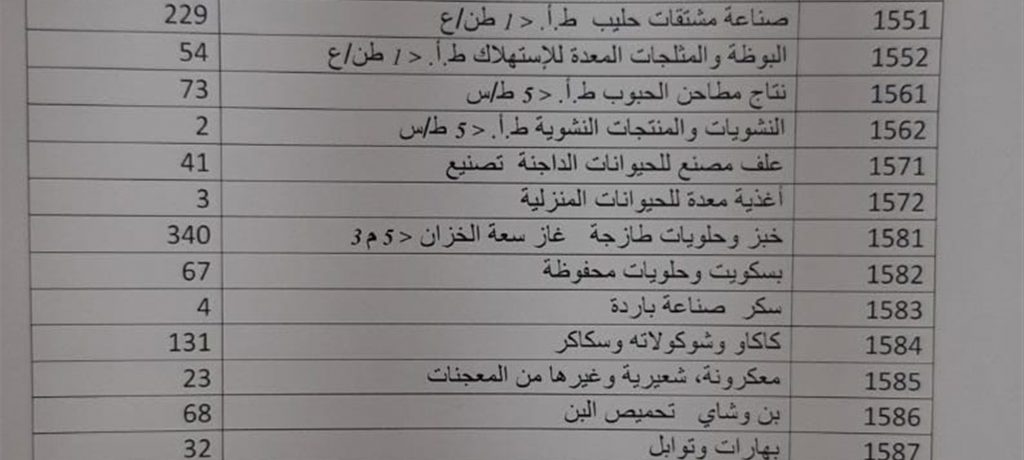 1551 صناعة مشتقات حليب ط.أ. < 1 طن/ع 229
1552 البوظة والمثلجات المعدة للإستهلاك ط.أ. < 1 طن/ع 54
1561 نتاج مطاحن الحبوب ط.أ. < 5 ط/س 73
1562 النشويات والمنتجات النشوية ط.أ. < 5 ط/س 2
1571 علف مصنع للحيوانات الداجنة تصنيع 41
1572 أغذية معدة للحيوانات المنزلية 3
1581 خبز وحلويات طازجة غاز سعة الخزان < 5 م3 340
1582 بسكويت وحلويات محفوظة 67
1583 سكر صناعة باردة 4
1584 كاكاو وشوكولاته وسكاكر 131
1585 معكرونة، شعيرية وغيرها من المعجنات 23
1586 بن وشاي تحميص البن 68
1587 بهارات وتوابل 32